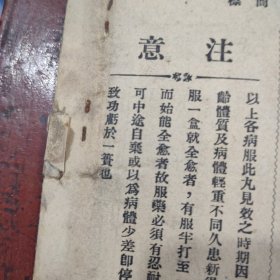 注意
以上各病服此丸見效之時期因
齡體質及病體輕重不同久患新
服一盒就全愈者，有服半打至
而始能全愈者故服藥必須有忍耐
可中途自棄或以為病體少差即停
致功虧於一簣也